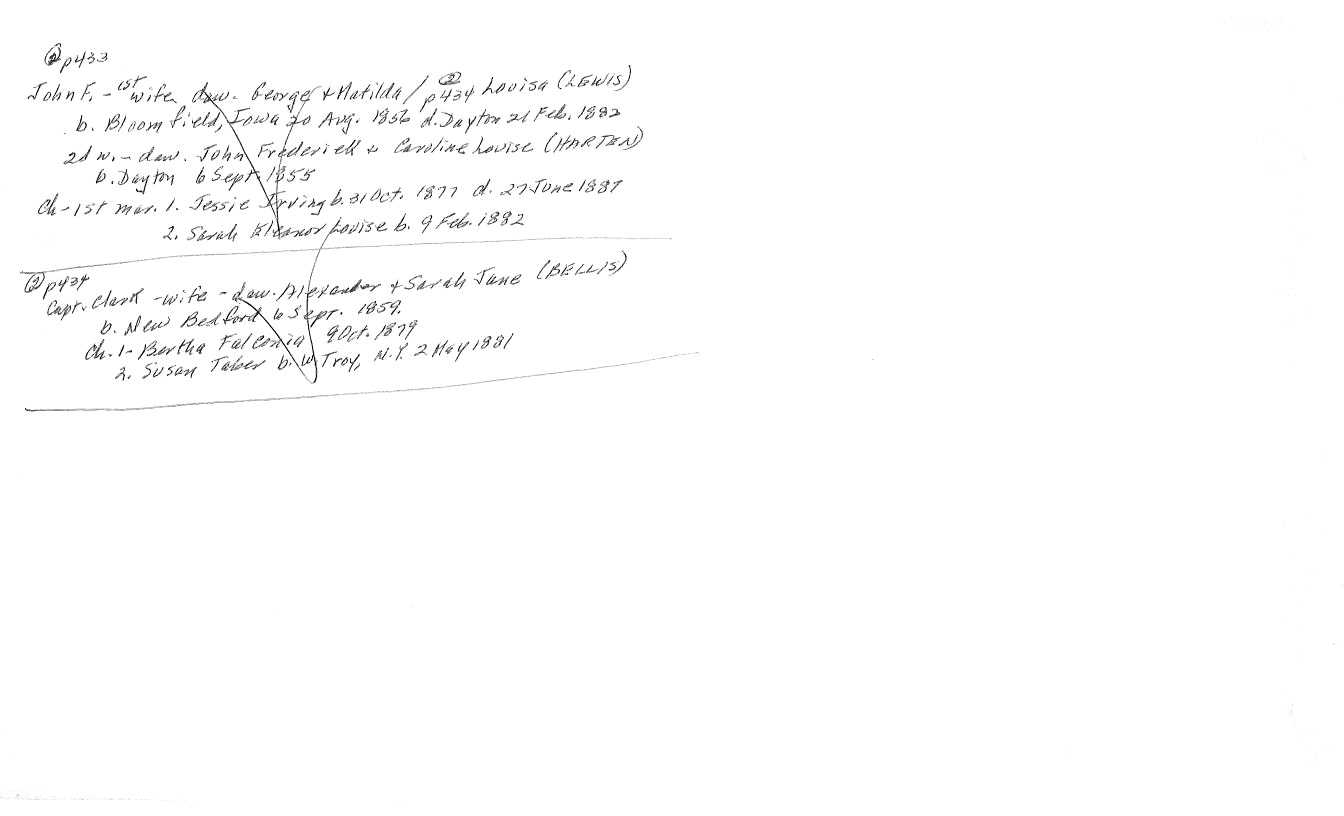 ② p433
John F. - 1st wife daw. George + Matilda / ② p434 Louisa (LEWIS)
b. Bloomfield, Iowa 20 Aug. 1856 d. Dayton 21 Feb. 1882
2d w. - daw. John Frederick + Caroline Louise (HARTEN)
b. Dayton 6 Sept. 1855
Ch - 1st mar. 1. Jessie Irving b. 31 Oct. 1877 d. 27 June 1887
2. Sarah Eleanor Louise b. 9 Feb. 1882
② p434
Capt. Clark - wife - daw. Alexander + Sarah Jane (BELLIS)
b. New Bedford 6 Sept. 1859.
Ch. 1 - Bertha Falconia 9 Oct. 1879
2. Susan Taber b. W Troy, N.Y. 2 May 1881